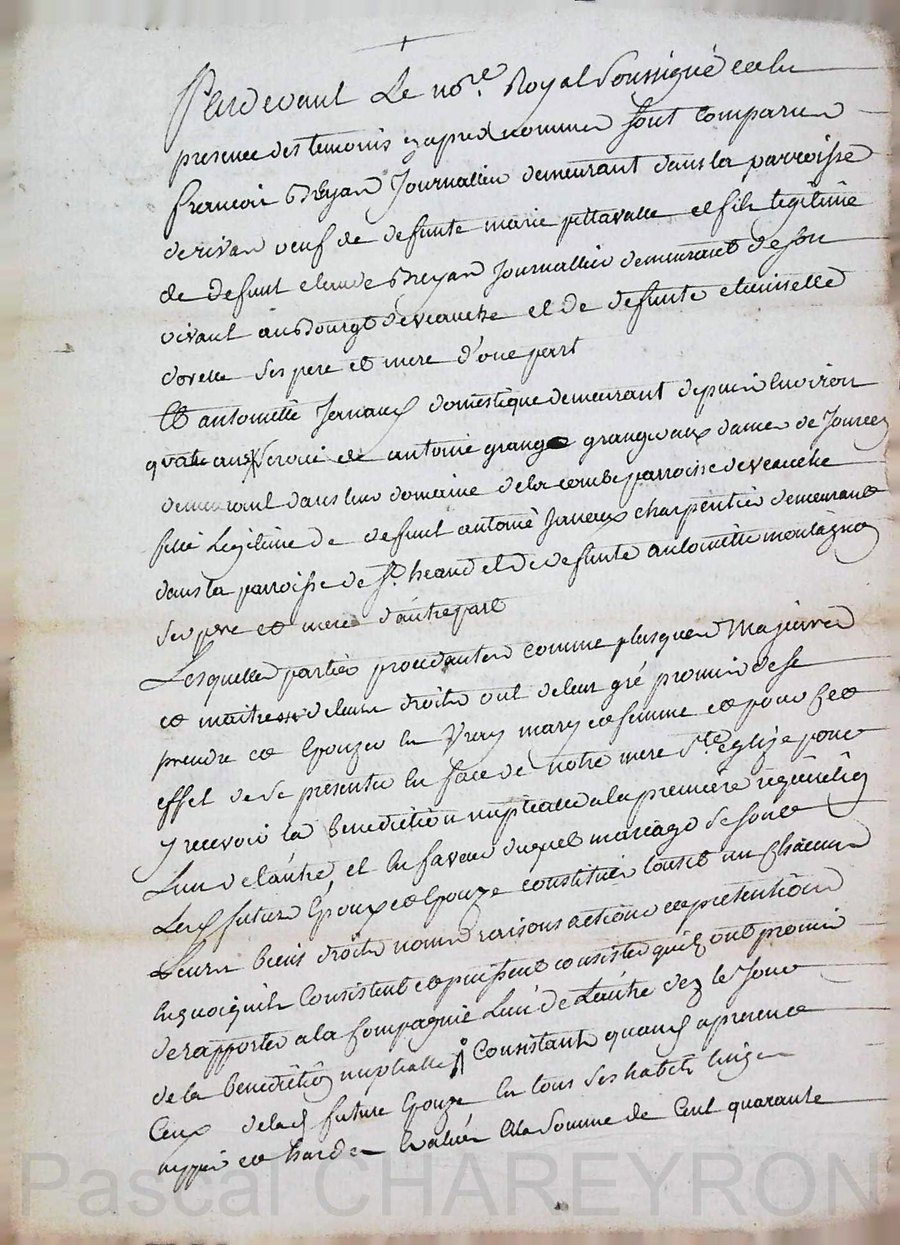 Pardevant Le no.re Royal soussigné et en la
presence des temoins cy apres nommes sont comparus
francois Breyan Journallier demeurant dans la parroisse
de rivas veuf de defunte marie pittavalle et fils legitime
de defunt claude Breyan Journallier demeurant de son
vivant au Bourg de veauche et de defunte etiennette
dorelle ses pere et mere d'une part
Et antoinette Janaux domestique demeurant depuis Environ
quatre ans de antoine grange granger aux dames de Jourcey
demeurant dans leur domaine de la combe parroisse de veauche
fille Legitime de defunt antoine Janaux charpentier demeurant
dans la parroisse de St. heand et de defunte antoinette montagne
ses pere et mere d'autre part
Lesquelles parties procedantes comme plus que Majeures
et maitres de leurs droits ont de leur gré promis de se
prendre et Epouzer En Vray mary et femme et pour cet
effet de se presenter En face de notre mere Ste église pour
y recevoir la Benediction nuptialle a la premiere requisition
L'un de L'autre, et En faveur duquel mariage se sont
Lesd futurs Epoux et Epouze constitués tous et un chacuns
Leurs biens droits noms raisons actions et pretentions
En quoi qu'ils Consistent et puissent consister qu'ils ont promis
de rapporter a la Compagnie L'un de L'autre dez le Jour
de la benediction nuptialle Consistants quand a presence
Ceux de lad future Epouze En tous ses habits linges
nippes et hardes Evalués a la somme de Cent quarante
Pascal CHAREYRON